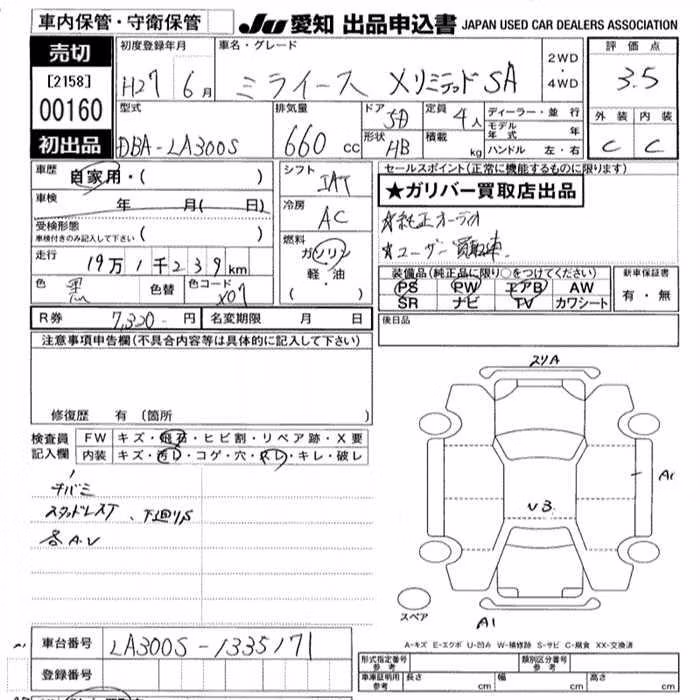 車内保管・守衛保管
JU 愛知 出品申込書 JAPAN USED CAR DEALERS ASSOCIATION
売切
[2158]
00160
初出品
初度登録年月 車名・グレード 2WD・4WD
H27 6月 ミライース Xリミテッド SA
評価点
3.5
外装 内装
C C
型式 排気量 ドア 定員 ディーラー・並行
DBA-LA300S 660cc 5D 4人
モデル年式 年
形状 HB 積載 kg ハンドル 左・右
車歴 自家用・( )
車検 年 月( 日)
受検形態
車検付きのみ記入して下さい ( )
走行 19万1千239km
色 黒 色替 色コード X07
シフト
IAT
冷房
AC
燃料
ガソリン
軽・油
・( )
セールスポイント(正常に機能するものに限ります)
★ガリバー買取店出品
★純正オーディオ
★ユーザー買取車
装備品(純正品に限り○をつけてください) 新車保証書
PS PW エアB AW 有・無
SR ナビ TV カワシート
R券 7,320- 円 名変期限 月 日
後日品
注意事項申告欄(不具合内容等は具体的に記入して下さい)
修復歴 有 (箇所 )
検査員記入欄
FW キズ・飛石・ヒビ割・リペア跡・X要
内装 キズ・汚レ・コゲ・穴・スレ・キレ・破レ
スタッドレスT、下廻りS
各A.U
スリA
A1
U3
A1
スペア
A-キズ E-エクボ U-凹み W-補修跡 S-サビ C-腐食 XX-交換済
車台番号 LA300S-1335171
登録番号
形式指定番号 参考 類別区分番号 参考
車庫証明用 参考 長さ cm 幅 cm 高さ cm